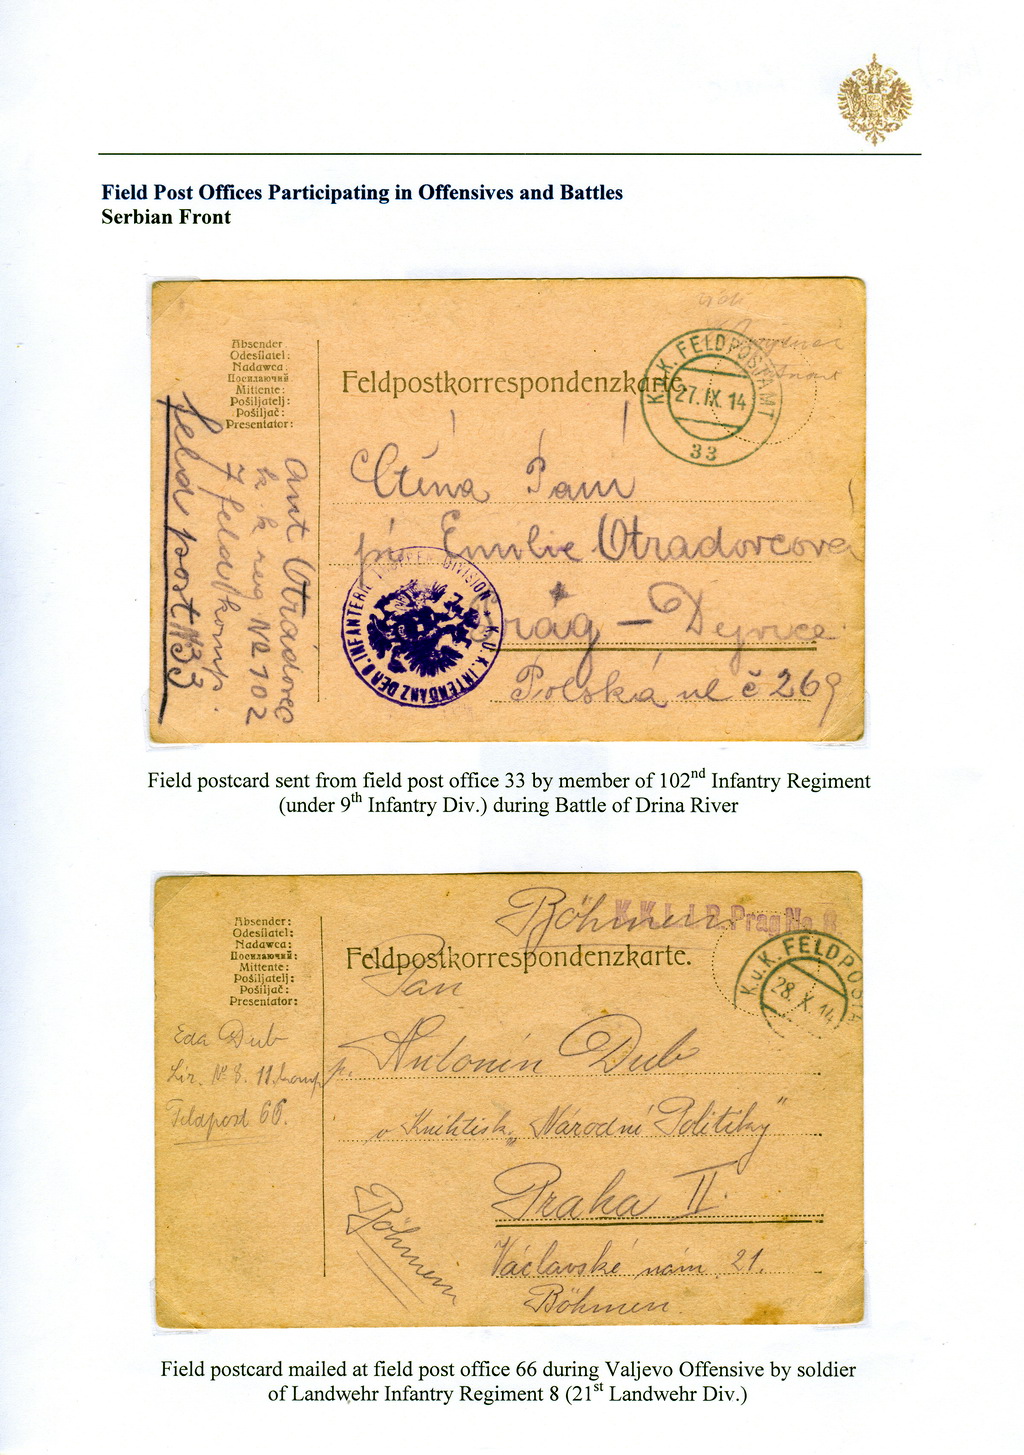 Field Post Offices Participating in Offensives and Battles
Serbian Front
Absender
Odesílatel:
Nadawca:
Посилаючий
Mittente:
Pošiljatelj:
Pošiljač:
Presentator:
Feldpostkorrespondenzkarte.
K.u.K. FELDPOSTAMT
27. IX. 14
33
Ctěná Paní
pí Emilie Otradovcova
Prag – Dejvice
Polská ul č 269
K.U.K. INTENDANZ DER 9. INFANTERIE TRUPPEN DIVISION
Ant Otradovec
k. k reg NR 102
7 feld komp.
feld post N33
Field postcard sent from field post office 33 by member of 102nd Infantry Regiment
(under 9th Infantry Div.) during Battle of Drina River
Böhmen
K.K.L.I.R. Prag No. 8.
K.u.K. FELDPOSTA
28. X. 14
Absender:
Odesílatel:
Nadawca:
Посилаючий:
Mittente:
Pošiljatelj:
Pošiljač:
Presentator:
Feldpostkorrespondenzkarte.
Pan
p. Antonín Dub
v Knihtisk. „Národní Politiky"
Praha II.
Václavské nám. 21.
Böhmen.
Böhmen
Eda Dub
Lir. № 8. 11 komp
Feldpost 66.
Field postcard mailed at field post office 66 during Valjevo Offensive by soldier
of Landwehr Infantry Regiment 8 (21st Landwehr Div.)